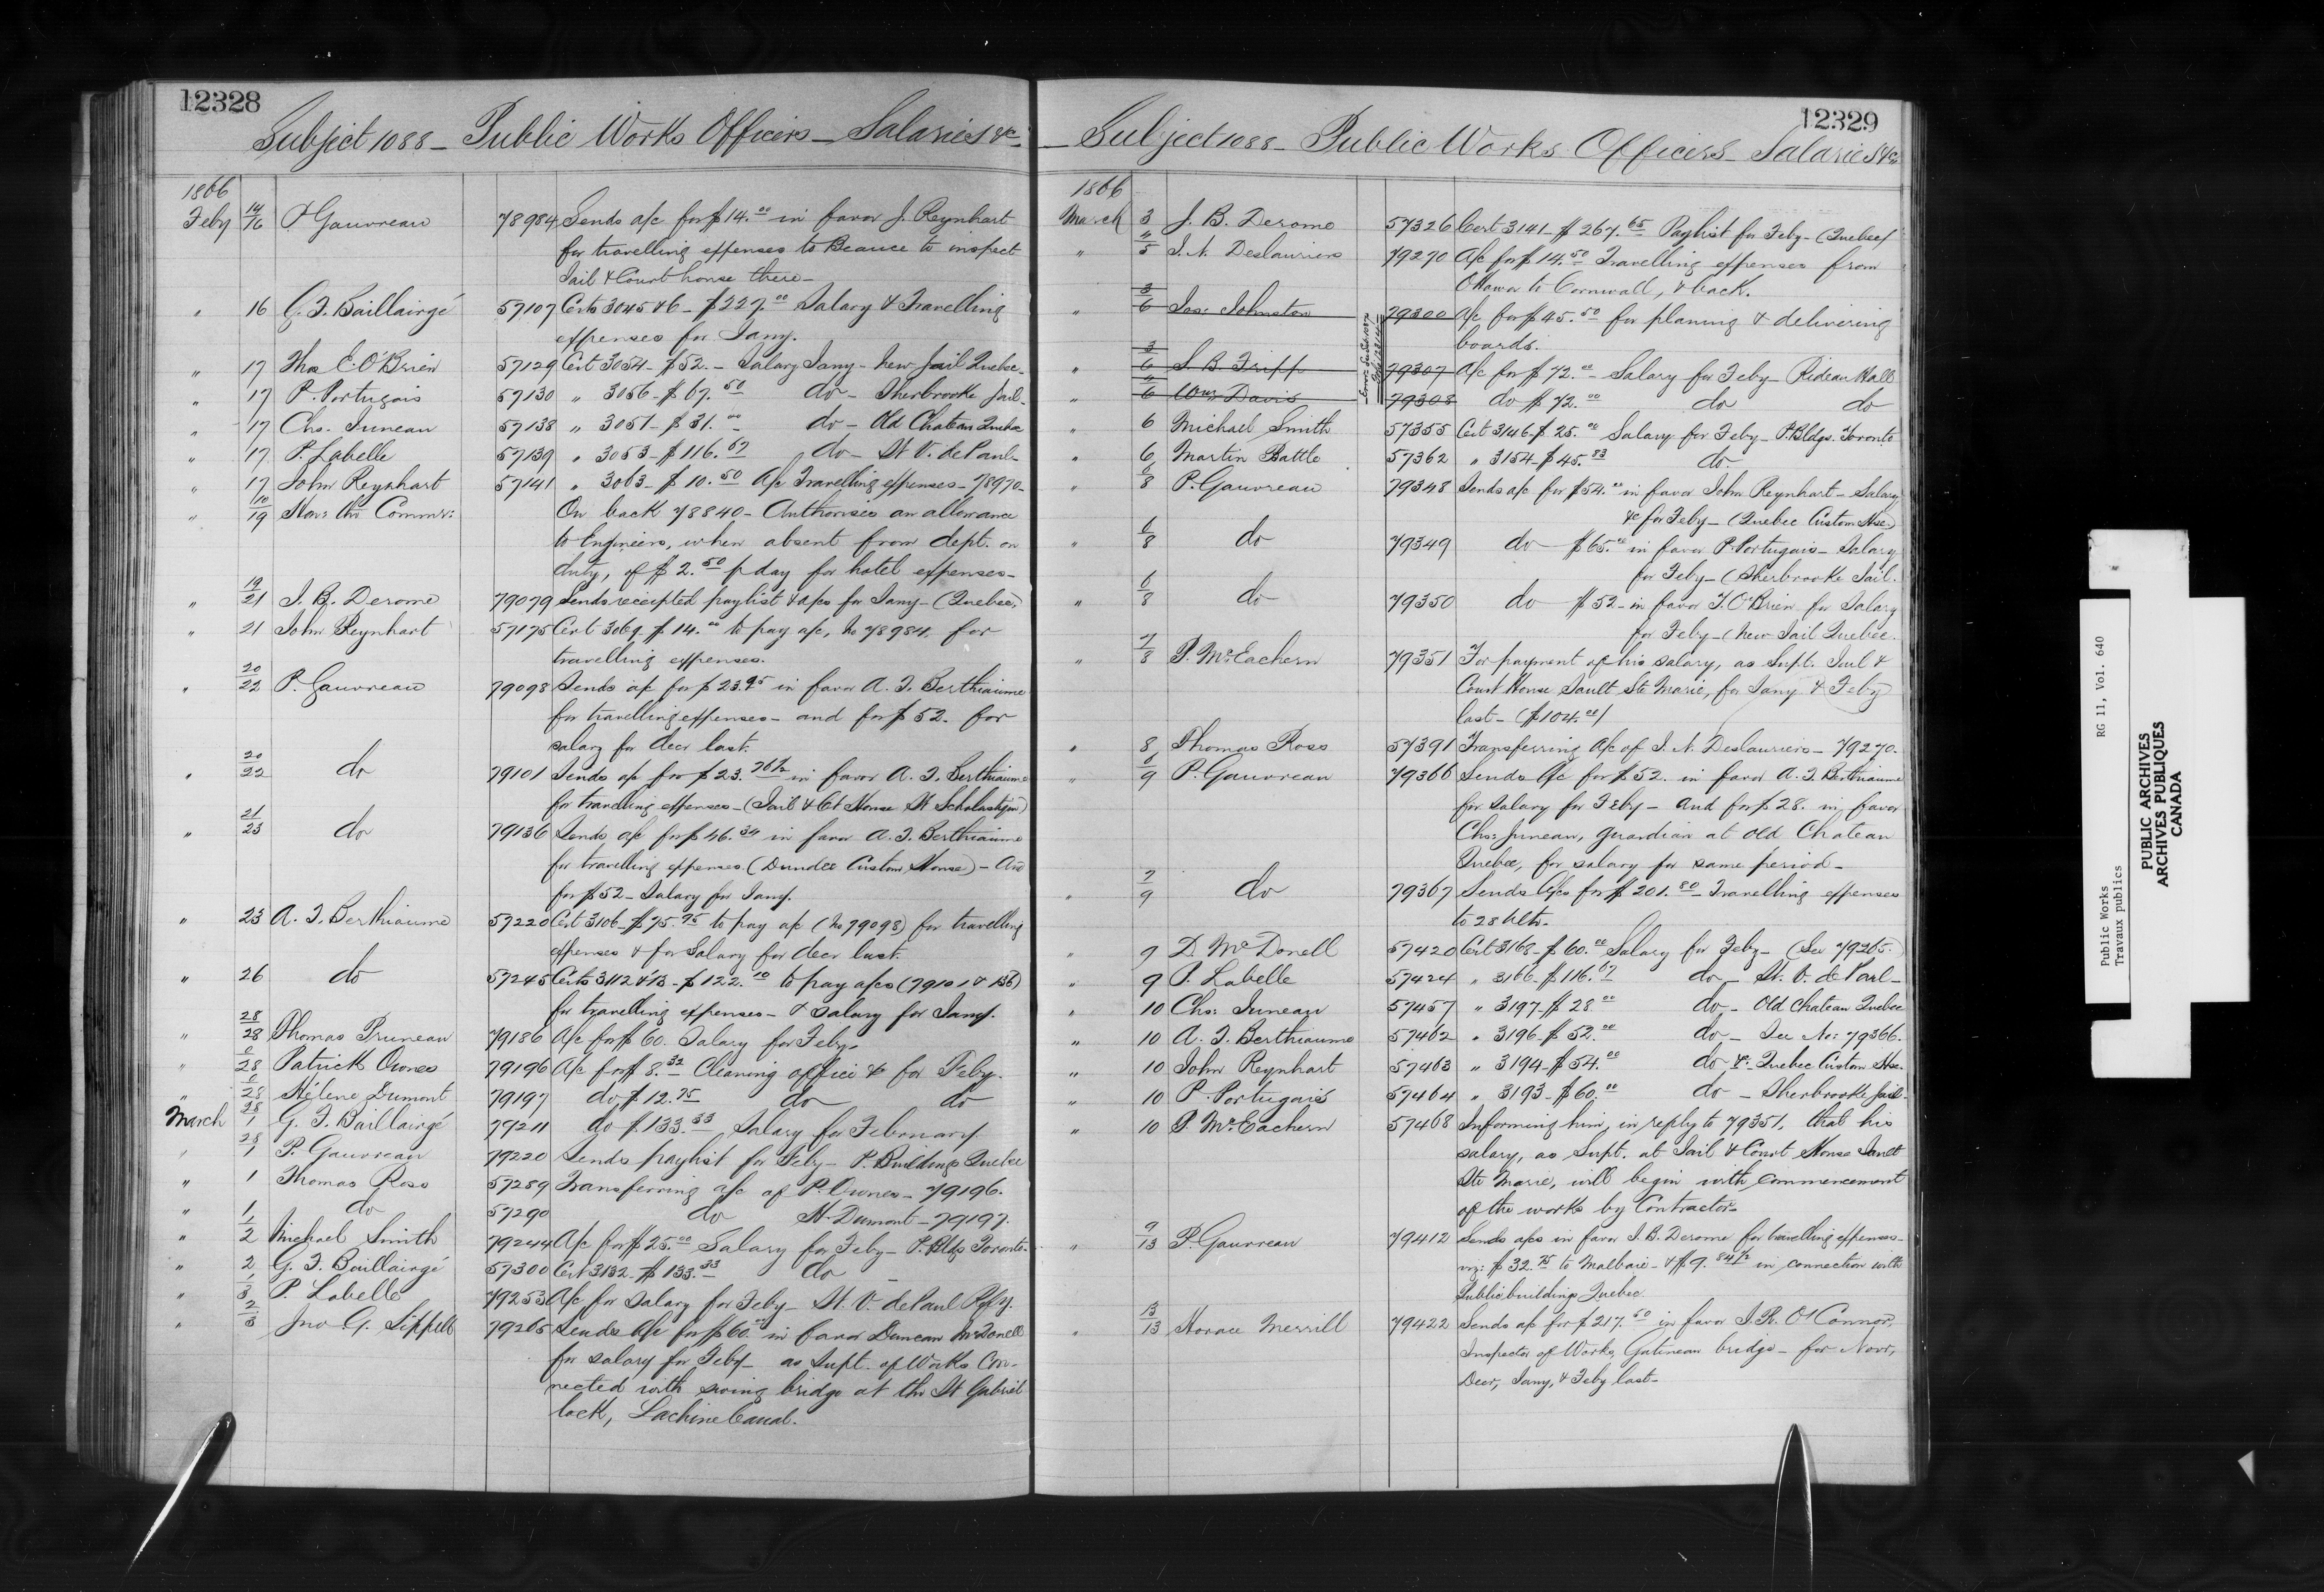 12328
Subject 1088 - Public Works Officers - Salaries &c
1866
Feby 14/16 P Gauvreau 78984 Sends a/c for $14.00 in favor J. Reynhart
for travelling expenses to Beauce to inspect
Jail & Court house there -
" 16 G. F. Baillairgé 57107 Certs 3045 & 6 - $227.00 Salary & Travelling
expenses for Jany.
" 17 Thos E. O'Brien 57129 Cert 3054 - $52. - Salary Jany - New Jail Quebec -
" 17 P. Portugais 57130 " 3056 - $67.50 do - Sherbrooke Jail -
" 17 Chs. Juneau 57138 " 3051 - $31.00 do - Old Chateau Quebec
" 17 P. Labelle 57139 " 3053 - $116.67 do - St V. de Paul -
" 17 John Reynhart 57141 " 3063 - $10.50 A/c Travelling expenses - 78970 -
" 10/19 Hon: the Commr: On back 78840 - Authorises an allowance
to Engineers, when absent from dept. on
duty, of $2.50 p day for hotel expenses -
" 19/21 J. B. Derome 79079 Sends receipted paylist & a/cs for Jany - (Quebec)
" 21 John Reynhart 57175 Cert 3069 $14.00 to pay a/c, No 78984, for
travelling expenses.
" 20/22 P. Gauvreau 79098 Sends a/c for $23.95 in favor A. T. Berthiaume
for travelling expenses - and for $52. for
salary for Decr last.
" 20/22 do 79101 Sends a/c for $23.76½ in favor A. T. Berthiaume
for travelling expenses - (Jail & Ct House St Scholastique)
" 21/23 do 79136 Sends a/c for $46.34 in favor A. T. Berthiaume
for travelling expenses (Dundee Custom House) - And
for $52 - Salary for Jany.
" 23 A. T. Berthiaume 57220 Cert 3106 - $75.95 to pay a/c (No 79098) for travelling
expenses & for Salary for Decr last.
" 26 do 57245 Certs 3112 & 13 - $122.10 to pay a/cs (79101 & 136)
for travelling expenses - & Salary for Jany.
" 28/28 Thomas Pruneau 79186 A/c for $60. Salary for Feby -
" 28 Patrick Ownes 79196 A/c for $8.32 Cleaning office &c for Feby.
" 28 Hélene Dumont 79197 do $12.75 do do
March 28/1 G. F. Baillairgé 79211 do $133.33 Salary for February.
" 28/1 P. Gauvreau 79220 Sends paylist for Feby - P. Buildings Quebec
" 1 Thomas Ross 57289 Transferring a/c of P. Ownes - 79196.
" 1 do 57290 do H. Dumont - 79197.
" 1/2 Michael Smith 79244 A/c for $25.00 Salary for Feby - P. Bldgs Toronto -
" 2 G. F. Baillairgé 57300 Cert 3132 - $133.33 do -
" 1/3 P. Labelle 79253 A/c for Salary for Feby - St. V. de Paul Rfy.
" 2/3 Jno G. Sippell 79265 Sends A/c for $60.00 in favor Duncan McDonell
for salary for Feby - as Supt. of Works Con-
nected with swing bridge at the St Gabriel
lock, Lachine Canal.
12329
- Subject 1088 - Public Works Officers - Salaries &c
1866
March 3 J. B. Derome 57326 Cert 3141 - $267.65 Paylist for Feby - (Quebec)
" 5 J. N. Deslauriers 79270 A/c for $14.50 Travelling expenses from
Ottawa to Cornwall, & back.
" 3/6 Jas: Johnston 79300 A/c for $45.50 for planing & delivering
boards.
" 3/6 S. B. Tripp 79307 A/c for $72.00 - Salary for Feby - Rideau Hall
" 6 Wm Davis 79308 do $72.00 do do
" 6 Michael Smith 57355 Cert 3146 - $25.00 Salary for Feby - P. Bldgs. Toronto
" 6 Martin Battle 57362 " 3154 - $45.83 do.
" 6/8 P. Gauvreau 79348 Sends a/c for $54.00 in favor John Reynhart - Salary
&c for Feby - (Quebec Custom Hse.)
" 6/8 do 79349 do $65.00 in favor P. Portugais - Salary
for Feby - (Sherbrooke Jail.
" 6/8 do 79350 do $52 - in favor T. O'Brien for Salary
for Feby - (New Jail Quebec.
" 7/8 P. McEachern 79351 For payment of his salary, as Supt. Jail &
Court House Sault Ste Marie, for Jany & Feby
last - ($104.00)
" 8 Thomas Ross 57391 Transferring A/c of J. N. Deslauriers - 79270.
" 6/9 P. Gauvreau 79366 Sends A/c for $52. in favor A. T. Berthiaume
for salary for Feby - and for $28. in favor
Chs: Juneau, guardian at old Chateau
Quebec, for salary for same period -
" 7/9 do 79367 Sends A/cs for $201.80 - Travelling expenses
to 28 Ulto.
" 9 D McDonell 57420 Cert 3168 - $60.00 Salary for Feby - (See 79265.
" 9 P. Labelle 57424 " 3166 - $116.67 do - St. V. de Paul -
" 10 Chs: Juneau 57457 " 3197 - $28.00 do - Old Chateau Quebec
" 10 A. T. Berthiaume 57462 " 3196 - $52.00 do - See No: 79366.
" 10 John Reynhart 57463 " 3194 - $54.00 do &c: Quebec Custom Hse.
" 10 P. Portugais 57464 " 3193 - $60.00 do - Sherbrooke Jail -
" 10 P. McEachern 57468 Informing him, in reply to 79351, that his
salary, as Supt. at Jail & Court House Sault
Ste Marie, will begin with commencement
of the works by Contractor -
" 9/13 P. Gauvreau 79412 Sends a/cs in favor J. B. Derome for travelling expenses -
viz: $32.75 to Malbaie - & $9.84½ in connection with
Public buildings Quebec.
" 13/13 Horace Merrill 79422 Sends a/c for $217.50 in favor J. R. O'Connor,
Inspector of Works, Gatineau bridge - for Novr,
Decr, Jany, & Feby last -
Public Works
Travaux publics
RG 11, Vol. 640
PUBLIC ARCHIVES
ARCHIVES PUBLIQUES
CANADA